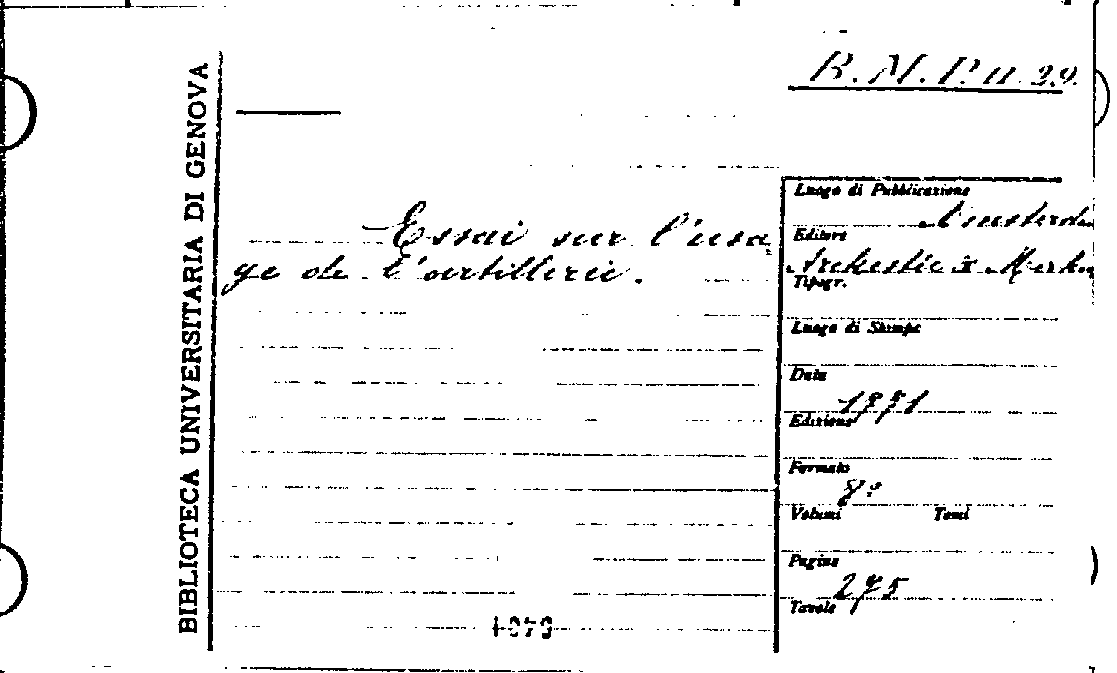 R. M. P. 11. 29.
BIBLIOTECA UNIVERSITARIA DI GENOVA
Essai sur l'usa
ge de l'artillerie.
Luogo di Pubblicazione
Amsterda
Editore
Arckestée & Merku
Tipogr.
Luogo di Stampa
Data
1771
Edizione
Formato
8°
Volumi Tomi
Pagine
275
Tavole